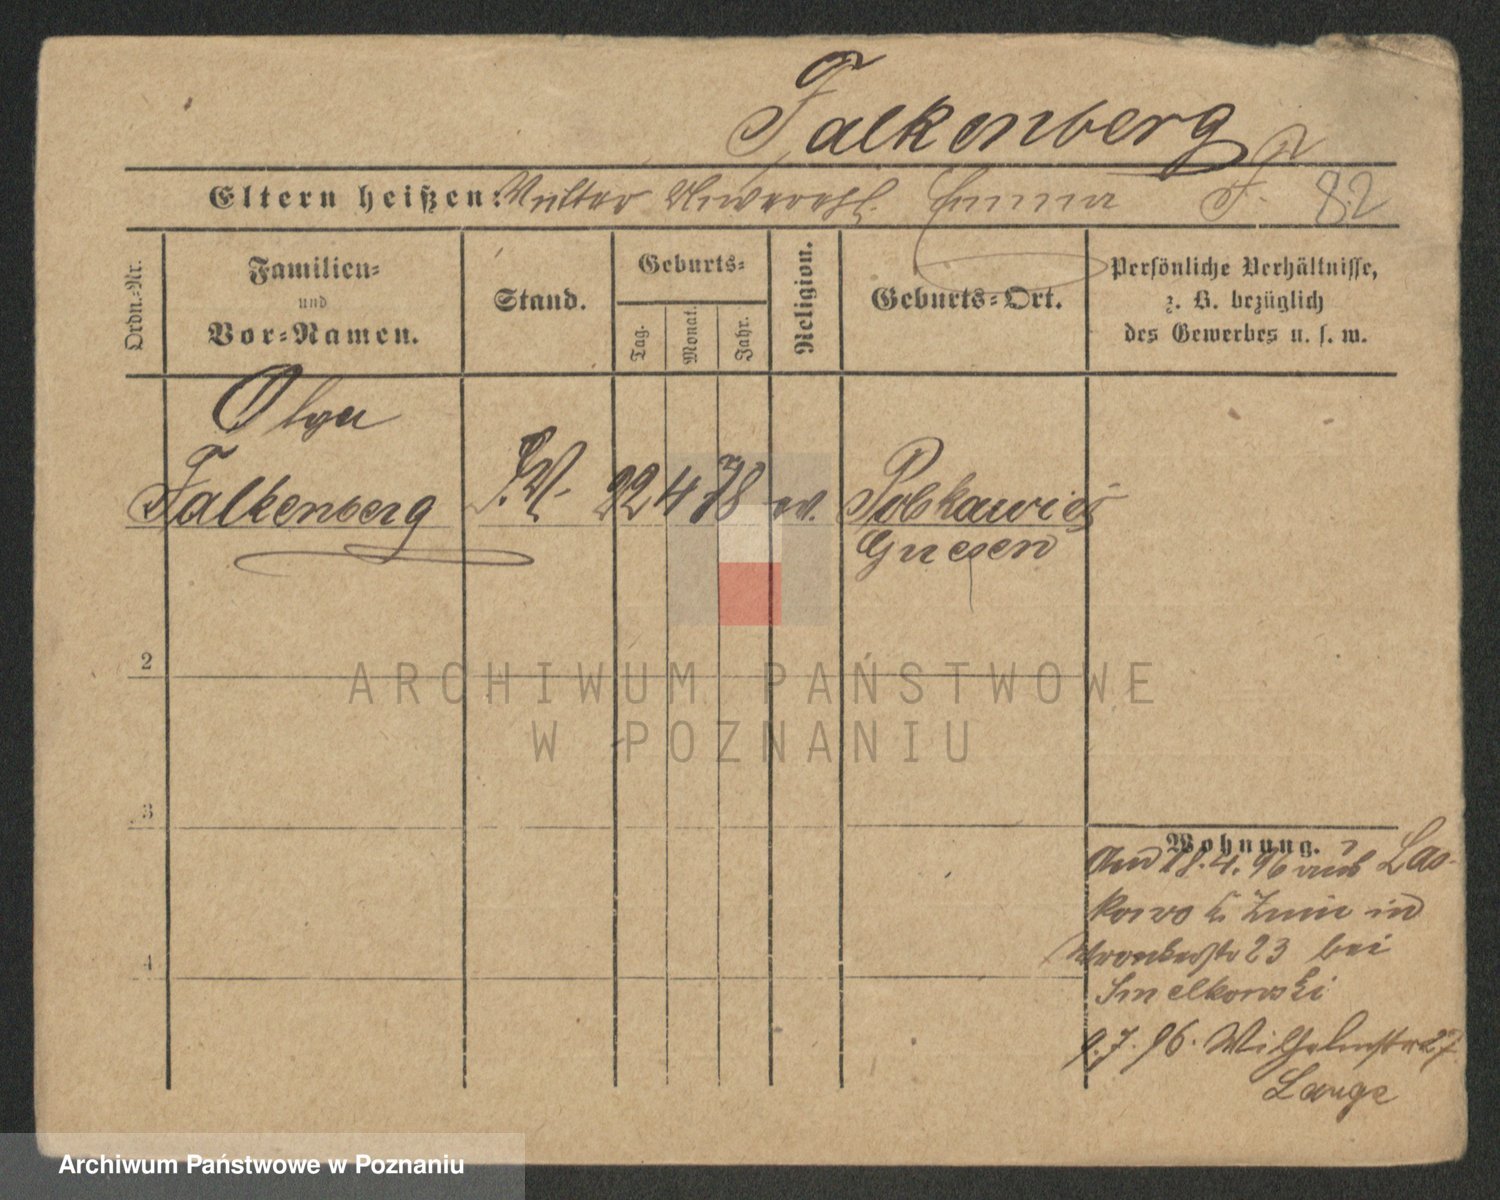 Falkenberg
Eltern heißen: Emma F. 82
Ordn.=Nr.
Familien=
und
Vor=Namen.
Stand.
Geburts=
Tag.
Monat.
Jahr.
Religion.
Geburts=Ort.
Persönliche Verhältnisse,
z. B. bezüglich
des Gewerbes u. s. w.
Olga
Falkenberg 22 4 78 ev.
Gnesen
2
3
4
Wohnung.
Am 18.4.96 aus Las-
kowo Znin in
Wronkerstr 23 bei
Smelkowski
9.7.96. Wilhelmstr 27
Lange
ARCHIWUM PAŃSTWOWE
W POZNANIU
Archiwum Państwowe w Poznaniu